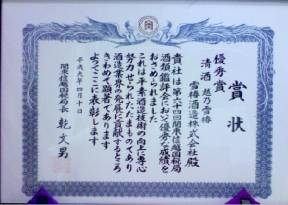 賞状
優秀賞
清酒 越乃雪椿
雪椿酒造株式会社殿
貴社は第六十四回関東信越国税局
酒類鑑評会において優秀な成績を
おさめられました
これは平素酒造技術の向上に専心
努力せられたたまものであり
酒造業界の発展に貢献するところ
きわめて顕著であります
よってここに表彰します
平成六年四月十日
関東信越国税局長
乾文男